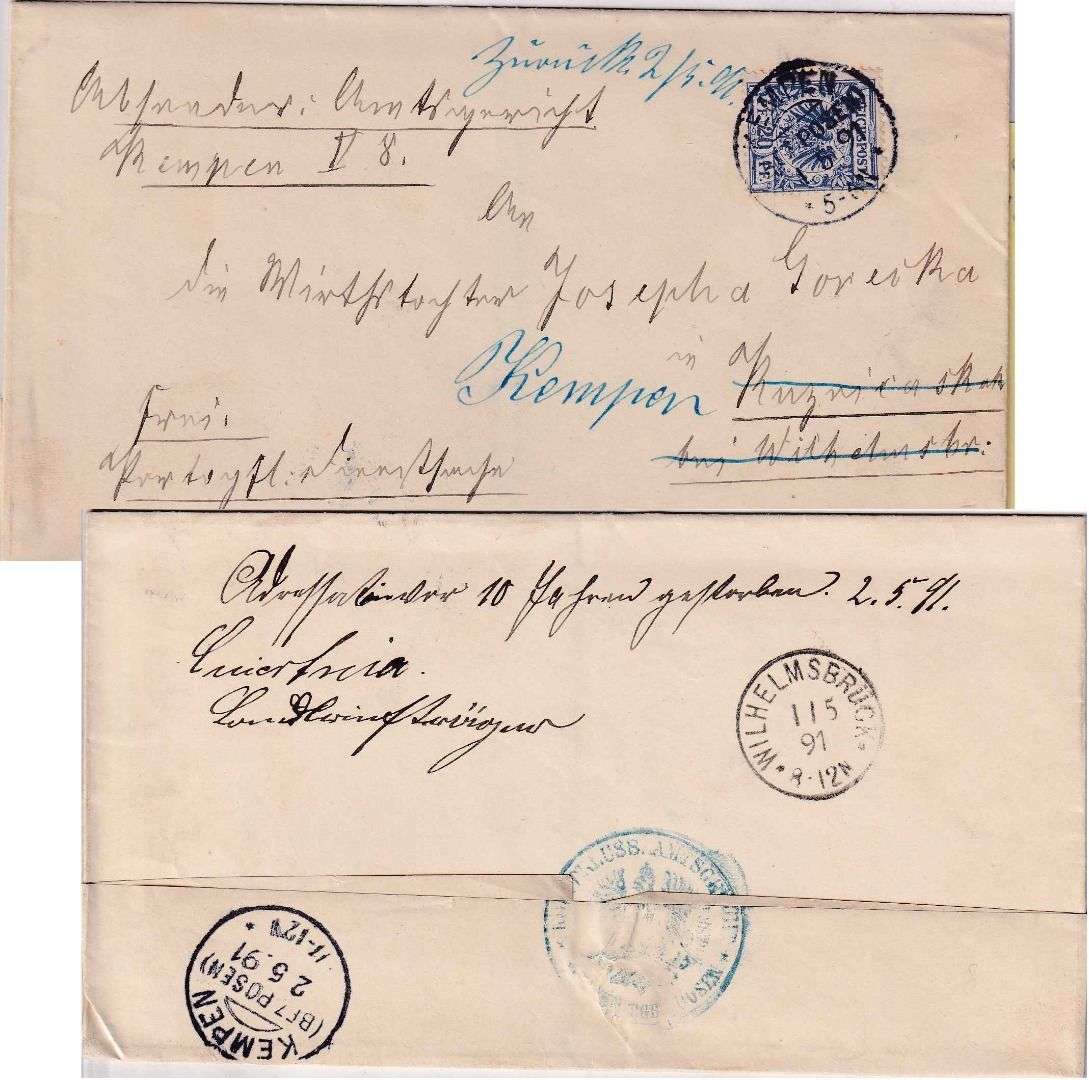 Zurück 2/5. 91.
Absender: Amtsgericht
Kempen V 8.
KEMPEN
1 5 91
* 5-
20 PF
REICHSPOST
An
die Wirthstochter Josepha Goreska
in
Kempen
bei Wilhelmsbr:
Frei.
Portopfl: Dienstsache
Adressatin vor 10 Jahren gestorben. 2.5.91.
Landbriefträger
WILHELMSBRÜCK
1 15
91
* 8-12N
KÖN. PREUSS. AMTSGERICHT
POSEN
KEMPEN
(BEZ POSEN)
2 5.91
11-12V *